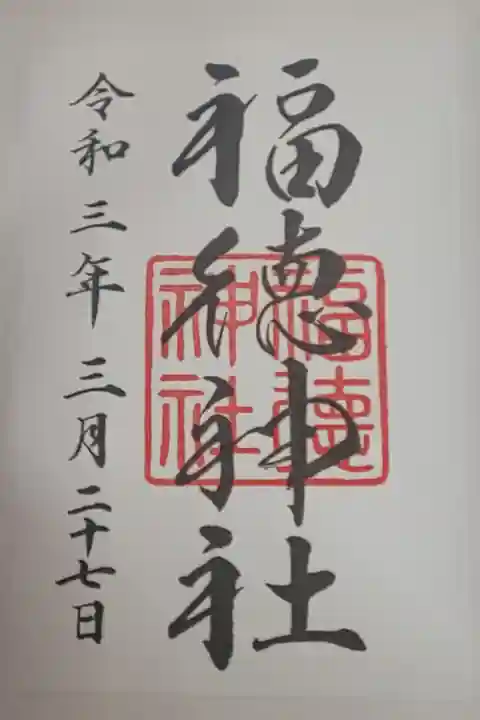 福徳神社
福徳神社
令和三年三月二十七日